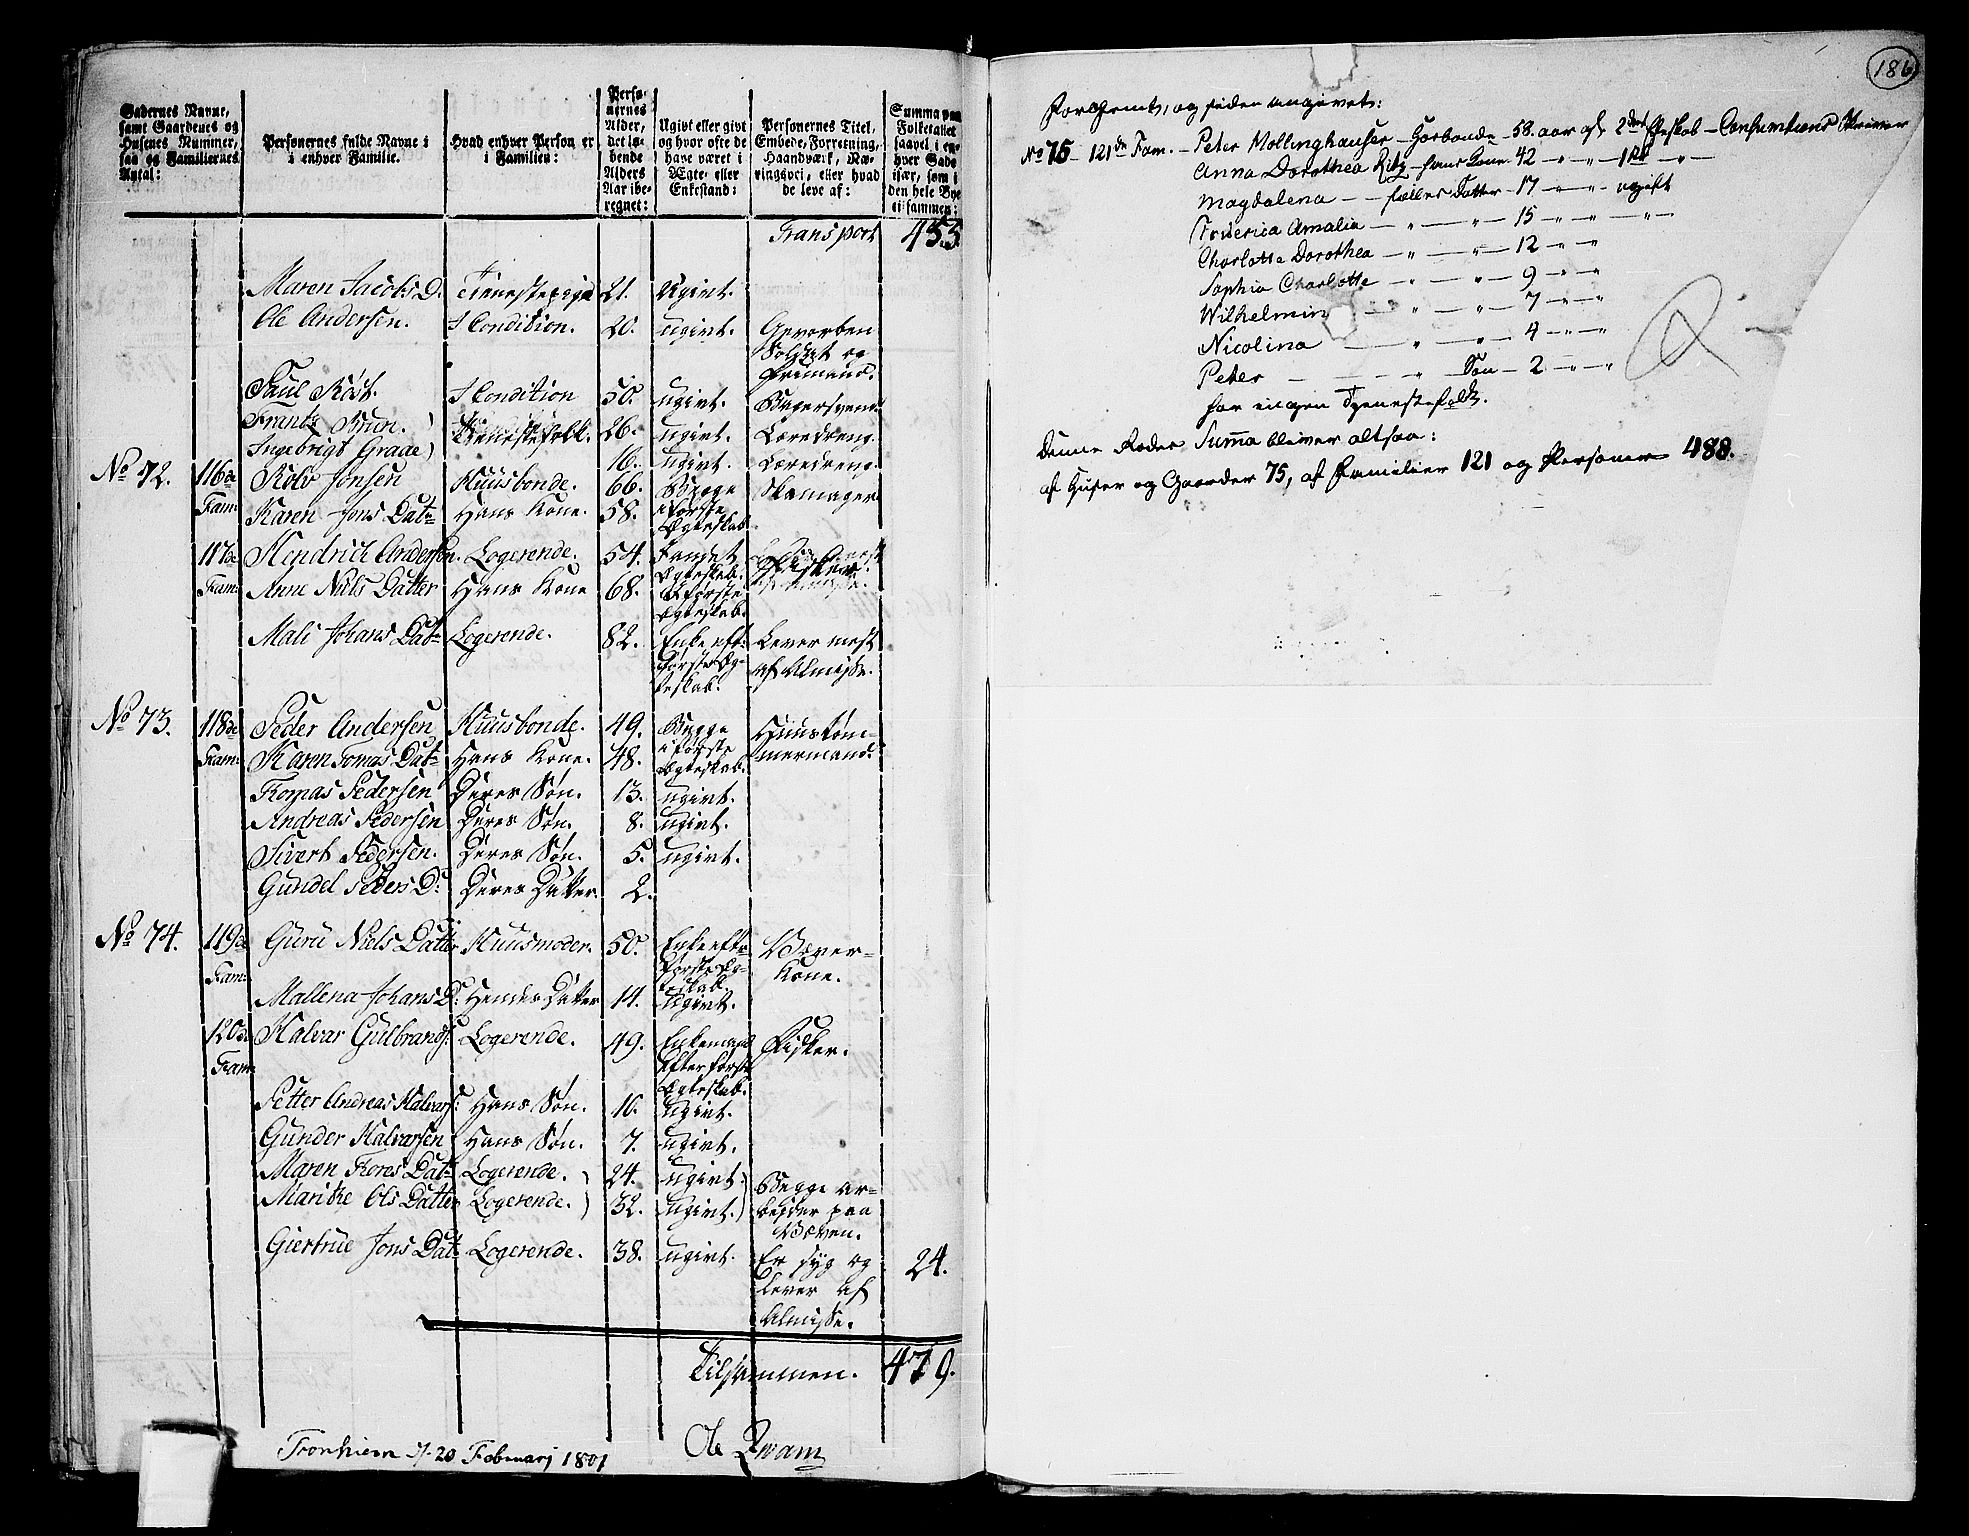 Gadernes Navne,
samt Gaardenes og
Husenes Nummer,
saa og Familiernes
Antal:
Personernes fulde Navne i
i enhver Familie.
Hvad enhver Person er
i Familien:
Perso-
nernes
Alder,
det lø-
bende
Alders
Aar ibe-
regnet:
Ugivt eller givt
og hvor ofte de
have været i
Ægte- eller
Enkestand:
Personernes Titel,
Embede, Forretning,
Haandværk, Næ-
ringsvei, eller hvad
de leve af:
Summa paa
Folketallet
saavel i en-
hver Gade
især, som i
den hele Bye
tilsammen:
Transport 453
Maren Jacobs D: Tienestepige 21. Ugivt.
Ole Andersen. I Condition. 20. ugivt. Gevorben Soldat og Frimand.
Paul Röst. I Condition 50. ugivt. Bagersvend.
Frantz Brun.) Tienestefolk. 26. ugivt. Læredreng.
Ingebrigt Graae) 16. ugivt. Læredreng.
No 72. 116de Fam: Rolv Jonsen Huusbonde. 66. Begge Skomager
Karen Jons Datr Hans Kone. 58. i første Ægteskab
117de Fam: Hendrich Andersen. Logerende. 54. I andet Ægteskab. Fisker.
Anne Niels Datter Hans Kone 68. I første Ægteskab.
Mali Johans Datr Logerende. 82. Enke eft: første Æg-teskab. Lever mest af Almisse.
No 73. 118de Fam: Peder Andersen Huusbonde. 49. Begge Huustøm-
Karen Tomas Datr Hans Kone. 48. i første Ægteskab. mermand.
Tomas Pedersen Deres Søn. 13. ugivt.
Andreas Pedersen Deres Søn. 8. ugivt.
Sivert Pedersen. Deres Søn. 5. ugivt.
Gundel Peders D: Deres Datter. 2.
No 74. 119de Fam: Guru Niels Datter Huusmoder. 50. Enke eftr første Æg-teskab. Væver-Kone.
Mallena Johans D: Hendes Datter 14. ugivt.
120de Fam: Halvar Gulbrands: Logerende. 49. Enkemand Efter første Ægteskab. Fisker.
Petter Andreas Halvars: Hans Søn. 10. ugivt.
Gunder Halvarsen Hans Søn. 7. ugivt.
Maren Tores Datr Logerende.) 24. ugivt.) Begge ar-
Marithe Ols Datter Logerende.) 32. ugivt.) beyder paa Væven.
Giertrue Jons Datr Logerende. 38. ugivt. Er syg og lever af Almisse. 24.
Tilsammen. 479.
Tronhiem d. 20 Februarj 1801 Ole Qvam
186
Forglemt, og siden angivet:
No 75 - 121de Fam. - Peter Mollinghauser - Gorbonde - 58. aar af 2det Egteskab - Consumtions Skriver
Anna Dorothea Ritz - hans Kone 42 - " - " - 1ste - " -
Magdalena - - fælles Datter - 17 - " - " - ugift
Frederica Amalia - " - " - 15 - " - " - " -
Charlotte Dorothea - " - " - 12 - " - "
Sophia Charlotte - " - " - 9 - " - "
Wilhelmin - " - " - 7 - " - "
Nicolina - " - " - 4 - " - "
Peter - - " Søn - 2 - " - "
har ingen Tjenestefolk.
Denne Rodes Summa bliver altsaa:
af Huser og Gaarder 75, af Familier 121 og Personer 488.